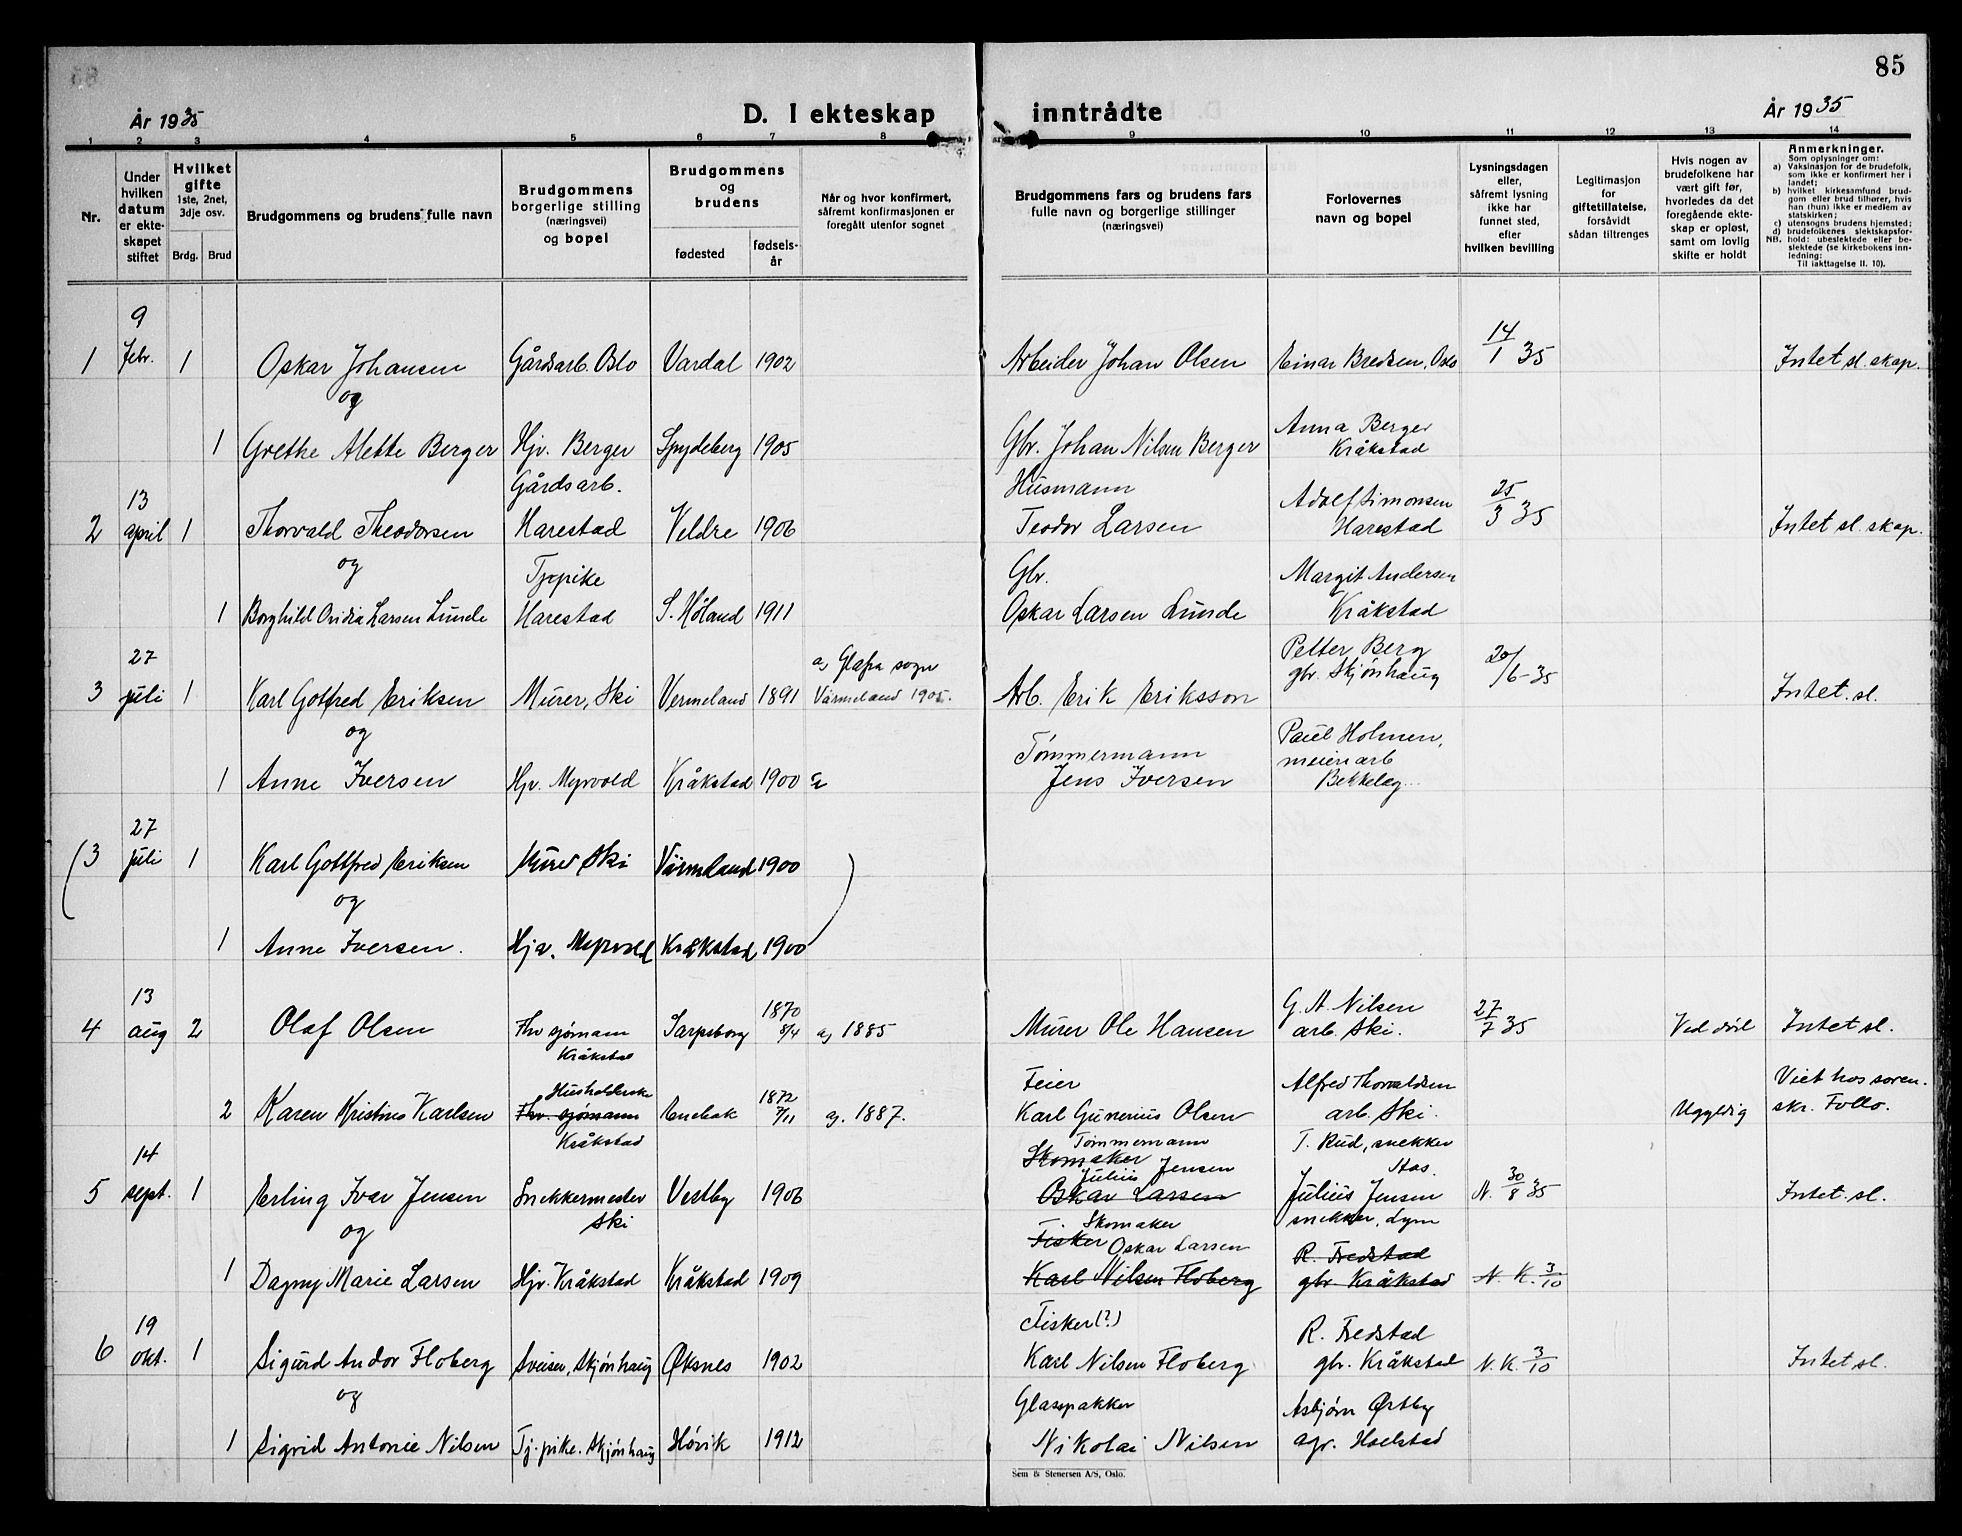 85
År 1935
D. I ekteskap
inntrådte
År 1935
1 2 3 4 5 6 7 8 9 10 11 12 13 14
Nr.
Under hvilken datum er ekteskapet stiftet
Hvilket gifte 1ste, 2net, 3dje osv.
Brdg. Brud
Brudgommens og brudens fulle navn
Brudgommens borgerlige stilling (næringsvei) og bopel
Brudgommens og brudens
fødested
fødselsår
Når og hvor konfirmert, såfremt konfirmasjonen er foregått utenfor sognet
Brudgommens fars og brudens fars fulle navn og borgerlige stillinger (næringsvei)
Forlovernes navn og bopel
Lysningsdagen eller, såfremt lysning ikke har funnet sted, efter hvilken bevilling
Legitimasjon for giftetillatelse, forsåvidt sådan tiltrenges
Hvis nogen av brudefolkene har vært gift før, hvorledes da det foregående ekteskap er opløst, samt om lovlig skifte er holdt
Anmerkninger.
Som oplysninger om:
a) Vaksinasjon for de brudefolk, som ikke er konfirmert her i landet;
b) hvilket kirkesamfund brudgom eller brud tilhører, hvis han (hun) ikke er medlem av statskirken;
c) utensogns brudens hjemsted;
d) brudefolkenes slektskapsforhold: ubeslektede eller beslektede (se kirkebokens innledning;
NB. Til iakttagelse II. 10).
1 9 febr. 1 Oskar Johansen Gårdsarb. Oslo Vardal 1902 Arbeider Johan Olsen Einar Bredsen, Oslo 14/1 35 Intet sl. skap.
og
1 Grethe Alette Berger Hjv. Berger Spydeberg 1905 Gbr. Johan Nilsen Berger Anna Berger Kråkstad
2 13 april 1 Thorvald Theodorsen Gårdsarb. Harestad Veldre 1906 Husmann Teodor Larsen Adolf Simonsen Harestad 25/3 35 Intet sl. skap.
og
1 Borghild Ovidia Larsen Lunde Tjpike Harestad S. Høland 1911 Gbr. Oskar Larsen Lunde Margit Andersen Kråkstad
3 27 juli 1 Karl Gotfred Eriksen Murer, Ski Vermeland 1891 a) Glafra sogn Värmeland 1905. Arb. Erik Eriksson Petter Berg gbr. Skjønhaug 20/6-35 Intet. sl.
og
1 Anne Iversen Hjv. Myrvold Kråkstad 1900 Tømmermann Jens Iversen Paul Holmen, meieriarb Bekkelag
(3 27 juli 1 Karl Gottfred Eriksen Murer Ski Värmeland 1900 )
og
1 Anne Iversen. Hjv. Myrvold Kråkstad 1900
4 13 aug 2 Olaf Olsen Fhv sjømann Kråkstad Sarpsborg 1870 8/4 a) 1885 Murer Ole Hansen G. A. Nilsen arb. Ski. 27/7 35 Ved død Intet sl.
2 Karen Kristine Karlsen Husholderske Fhv. sjømann Kråkstad Enebak 1872 7/11 a). 1887. Feier Karl Gunerius Olsen Alfred Thorvaldsen arb. Ski. Ugyldig Viet hos soren. skr. Follo.
5 14 sept. 1 Erling Ivar Jensen Snekkermester Ski Vestby 1906 Tømmermann Skomaker Julius Jensen Oskar Larsen T. Rud, snekker Aas. Julius Jensen snekker, Lyra N. 30/8 35 Intet. sl.
og
1 Dagny Marie Larsen Hjv. Kråkstad Kråkstad 1909 Skomaker Fisker Oskar Larsen Karl Nilsen Floberg R. Fredstad gbr. Kråkstad N. K. 3/10
6 19 okt. 1 Sigurd Andor Floberg Sveiser, Skjønhaug Øksnes 1902 Fisker (?) Karl Nilsen Floberg R. Fredstad gbr. Kråkstad N. K. 3/10 Intet sl.
og
1 Sigrid Antonie Nilsen Tj. pike. Skjønhaug Høvik 1912 Glasspakker Nikolai Nilsen Asbjørn Østby agr. Hoelstad
Sem & Stenersen A/S, Oslo.